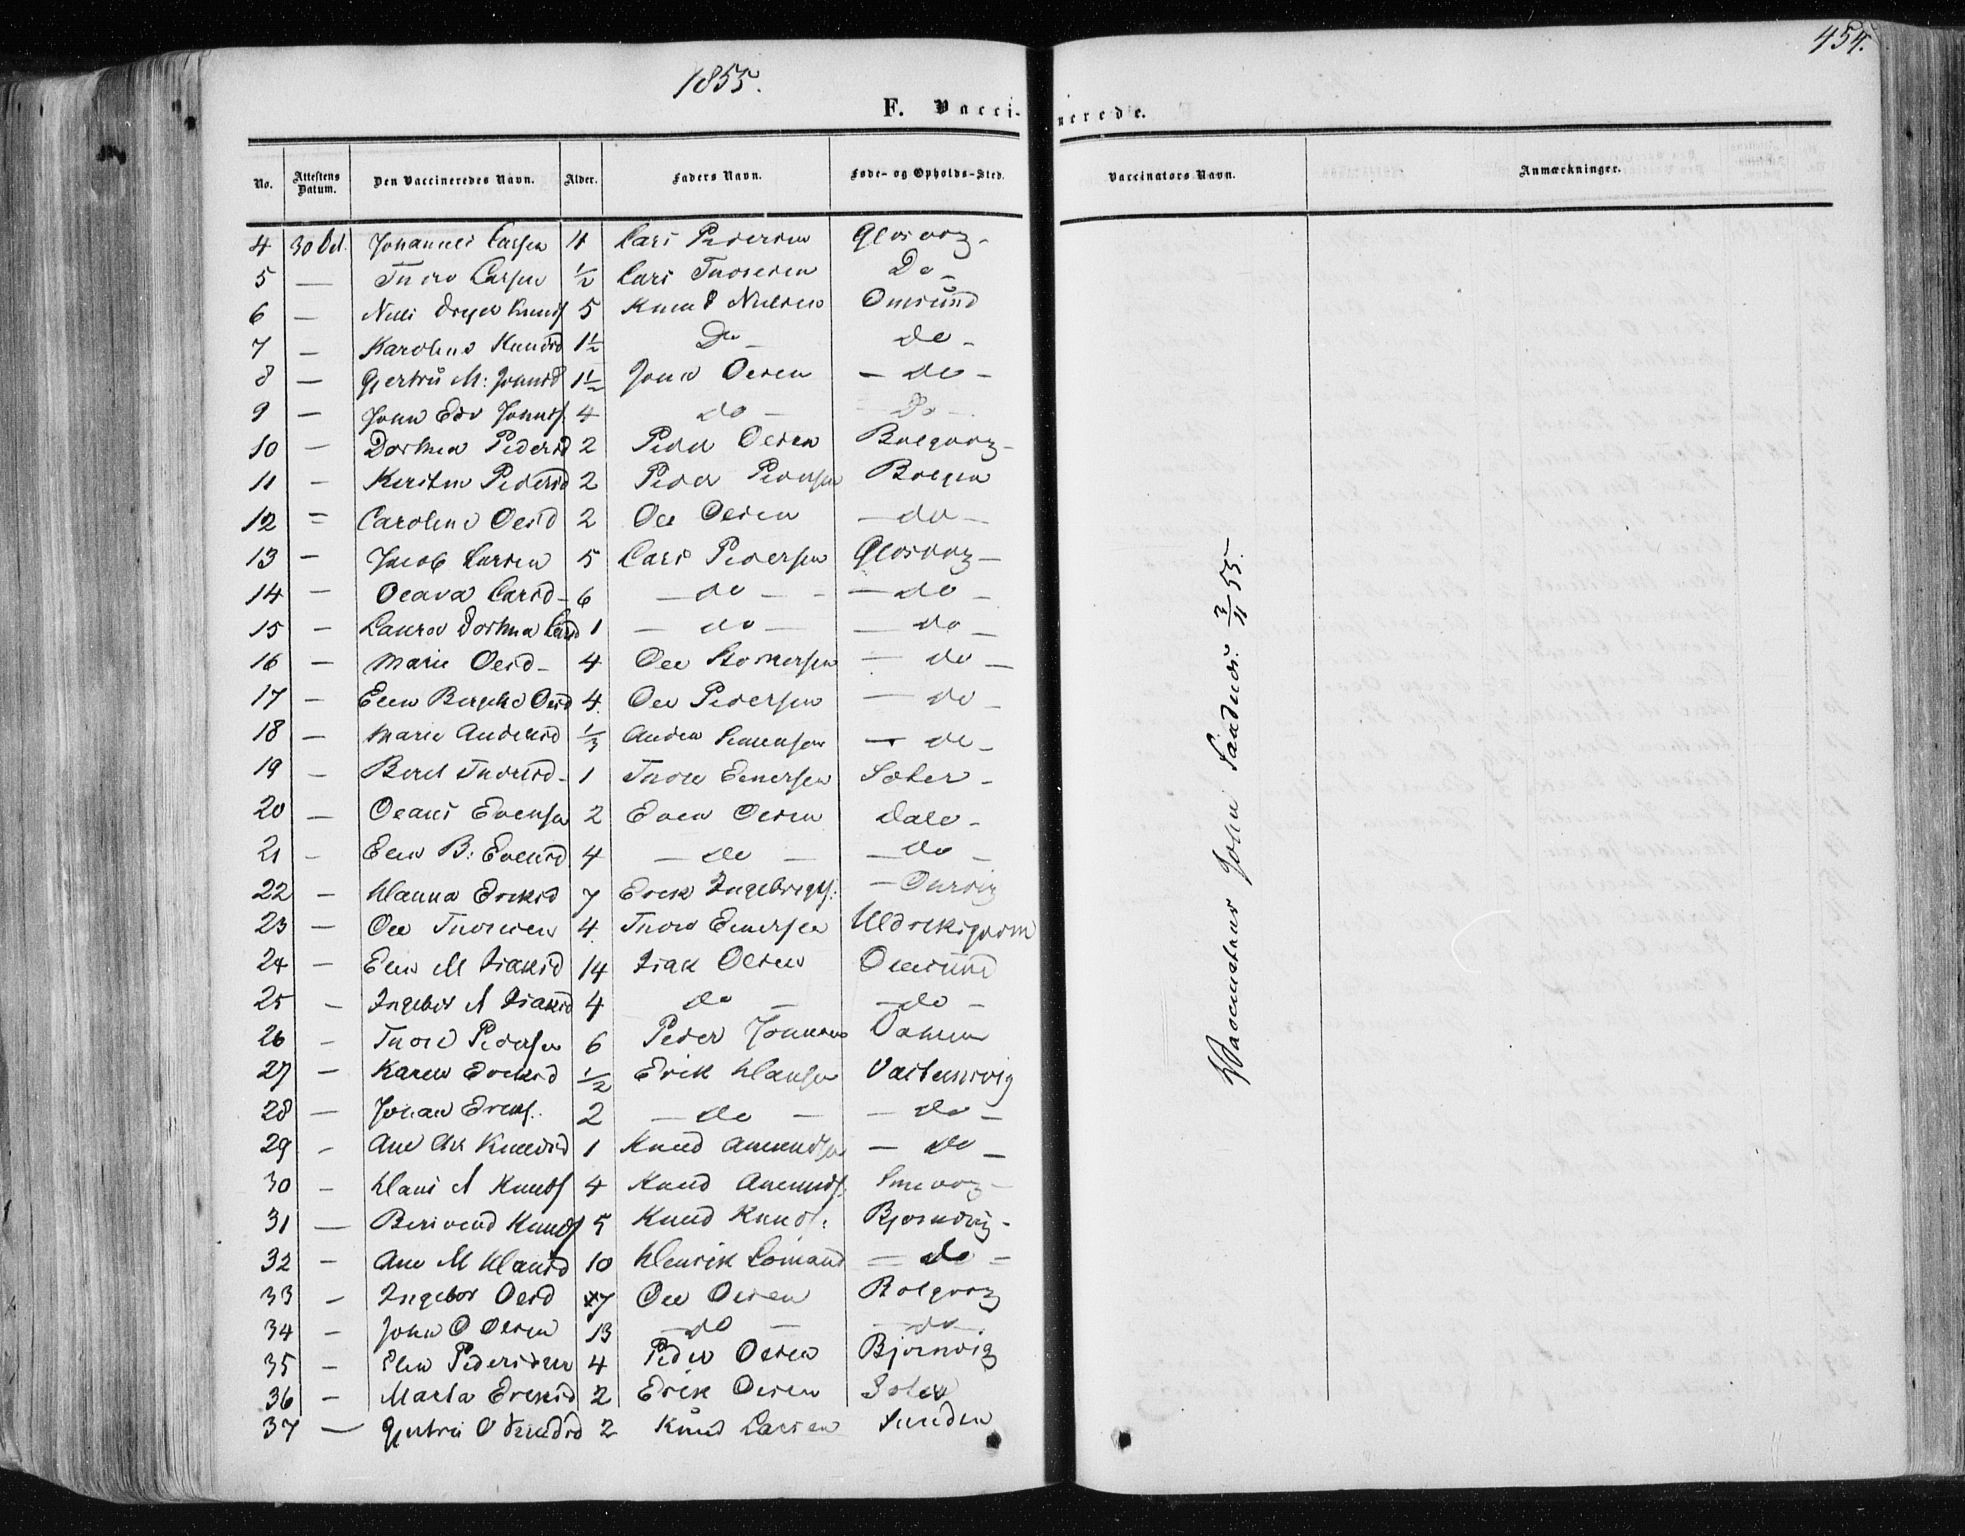 454.
1855.
F. Vaccinerede.
No. Attestens Datum. Den Vaccineredes Navn. Alder. Faders Navn. Føde- og Opholds-Sted. Vaccinators Navn. Anmærkninger.
4 30 Oct. Johannes Larsen 4 Lars Pedersen Glosvog -
5 — Thore Larsen ½ Lars Thoresen Do -
6 — Knuds 5 Knud Nielsen Omsund
7 — Karoline Knudsd 1½ Do - do -
8 — Gjertru M: Johnsd 1½ John Olsen - do -
9 — John Edv Johns. 4 do - Do -
10 — Dorthea Pedersd 2 Peder Olsen Bolgvog -
11 - Kirstin Pedersd 2 Peder Pedersen Bolgen
12 = Caroline Olsd 2 Ole Olsen - do -
13 — Jacob Larsen 5 Lars Pedersen Glosvog -
14 — Olava Larsd - 6 - do - - - do -
15 — Laura Dorthea Larsd 1 - do - - do -
16 — Marie Olsd - 4 Ole - do -
17 — Elen Olsd 4. Ole Pedersen - do -
18 — Marie Andersd ⅓ Anders Simensen - do -
19 - Beret Thoresd - 1 Thore Einersen -
20 — Olaus Evensen 2 Even Olsen Dale -
21 - Elen B: Evensd 4 - do - - do -
22 - Hanna Eriksd 7 Erik Ingebrigts. -
23 — Ole Thoresen 4. Thore Einersen
24 — Elen M Isaksd 14 Isak Olsen Omsund
25 - Ingebor A Isaksd 4 do - - do -
26 - Thore Pedersen 6 Peder Johnsen
27 — Karen Eriksd ½ Erik Hansen
28 — Johan Eriks. 2 - do - - do -
29 - Ane Knudsd 1 Knud Amundsen - do -
30 - Hans A Knuds 4 Knud Amunds.
31 — Knuds 5 Knud Knuds: Bjørnvig -
32 — Ane M Hansd 10 Henrik - do -
33 - Ingebor Olsd 7 Ole Olsen Bolgvog
34 - John O Olsen 13 - do - - do -
35 — Elen Pedersdtr 4 Peder Olsen Bjørnvig
36 - Marta Eriksd 2 Erik Olsen
37 — Gjertru O Knudsd 2 Knud Larsen Sunden
John Sandnes. 2/11 55.